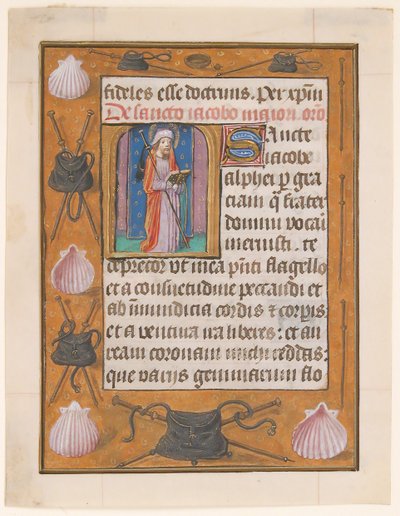 fideles esse doctrinis. Per xpm
De sancto iacobo maiori oro.
Sancte
iacobe
alphei p gra
ciam q frater
domini vocari
meruisti. te
deprecor vt mea pniti flagello
et a consuetudine peccandi et
ab inmundicia cordis & corpis
et a ventura ira liberes: et au
ream coronam michi reddas:
que varijs gemmarum flo